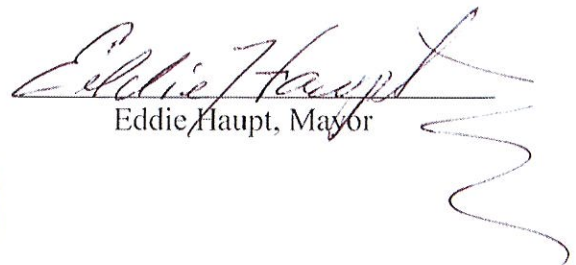 Eddie Haupt
Eddie Haupt, Mayor